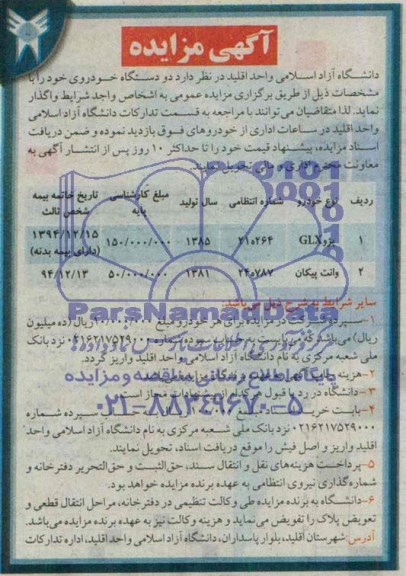 آگهی مزایده
دانشگاه آزاد اسلامی واحد اقلید در نظر دارد دو دستگاه خودروی خود را با
مشخصات ذیل از طریق برگزاری مزایده عمومی به اشخاص واجد شرایط واگذار
نماید. لذا متقاضیان می‌توانند با مراجعه به قسمت تدارکات دانشگاه آزاد اسلامی
واحد اقلید در ساعات اداری از خودروهای فوق بازدید نموده و ضمن دریافت
اسناد مزایده، پیشنهاد قیمت خود را تا حداکثر ۱۰ روز پس از انتشار آگهی به
معاونت اداری و مالی تحویل نمایند.
ردیف نوع خودرو شماره انتظامی سال تولید مبلغ کارشناسی پایه تاریخ خاتمه بیمه شخص ثالث
۱ پژو GLX ۲۱ه۲۶۴ ۱۳۸۵ ۱۵۰/۰۰۰/۰۰۰ ۱۳۹۴/۱۲/۱۵ (دارای بیمه بدنه)
۲ وانت پیکان ۷۸۷ ۱۳۸۱ ۵۰/۰۰۰/۰۰۰ ۹۴/۱۲/۱۳
سایر شرایط به شرح ذیل می‌باشد:
۱- سپرده شرکت در مزایده برای هر خودرو مبلغ ریال (ده میلیون
ریال) می‌باشد که می‌بایست به حساب سپرده شماره ۰۲۱۶۲۱۷۵۲۹۰۰۰ نزد بانک
ملی شعبه مرکزی به نام دانشگاه آزاد اسلامی واحد اقلید واریز گردد.
۲- هزینه
۳- دانشگاه در رد یا قبول هر کدام از پیشنهادات مجاز است.
۴- بابت خرید سپرده شماره
۰۲۱۶۲۱۷۵۲۹۰۰۰ نزد بانک ملی شعبه مرکزی به نام دانشگاه آزاد اسلامی واحد
اقلید واریز و اصل فیش را موقع دریافت اسناد، تحویل نمایند.
۵- پرداخت هزینه‌های نقل و انتقال سند، حق الثبت و حق التحریر دفترخانه و
شماره‌گذاری نیروی انتظامی به عهده برنده مزایده خواهد بود.
۶- دانشگاه به برنده مزایده طی وکالت تنظیمی در دفترخانه، مراحل انتقال قطعی و
تعویض پلاک را تفویض می‌نماید و هزینه وکالت نیز به عهده برنده مزایده می‌باشد.
آدرس: شهرستان اقلید، بلوار پاسداران، دانشگاه آزاد اسلامی واحد اقلید، اداره تدارکات
ParsNamadData
پایگاه اطلاع رسانی مناقصه و مزایده
۰۲۱-۸۸۳۴۹۶۷۰-۵